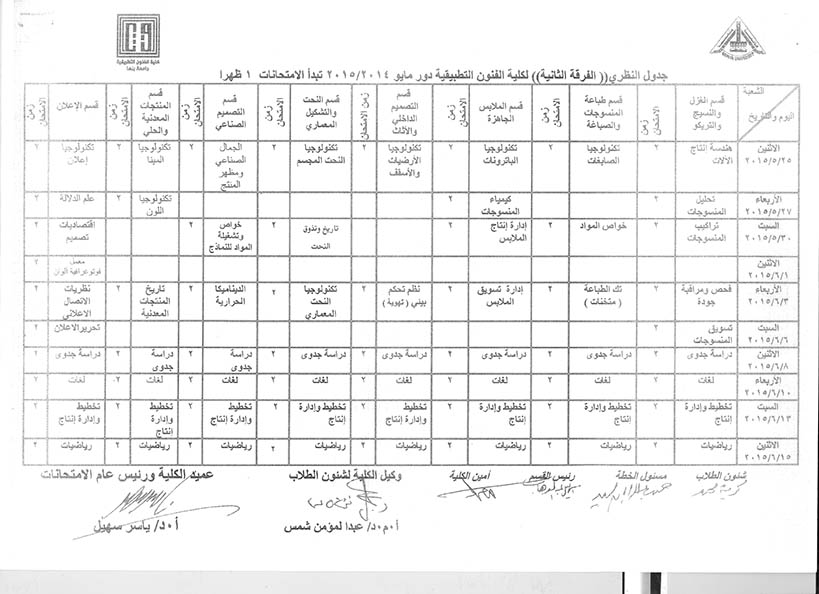 كلية الفنون التطبيقية
جامعة بنها
جدول النظري(( الفرقة الثانية)) لكلية الفنون التطبيقية دور مايو ٢٠١٥/٢٠١٤ تبدأ الامتحانات ١ ظهرا
الشعبة
اليوم والتاريخ
قسم الغزل والنسيج والتريكو
زمن الامتحان
قسم طباعة المنسوجات والصباغة
زمن الامتحان
قسم الملابس الجاهزة
زمن الامتحان
قسم التصميم الداخلي والأثاث
زمن الامتحان
قسم النحت والتشكيل المعماري
زمن الامتحان
قسم التصميم الصناعي
زمن الامتحان
قسم المنتجات المعدنية والحلي
زمن الامتحان
قسم الإعلان
زمن الامتحان
الاثنين ٢٠١٥/٥/٢٥
هندسة إنتاج الآلات ٢
تكنولوجيا الصابغات ٢
تكنولوجيا الباترونات ٢
تكنولوجيا الأرضيات والأسقف ٢
تكنولوجيا النحت المجسم ٢
الجمال الصناعي ومظهر المنتج ٢
تكنولوجيا المينا ٢
تكنولوجيا إعلان ٢
الأربعاء ٢٠١٥/٥/٢٧
تحليل المنسوجات ٢
كيمياء المنسوجات ٢
تكنولوجيا اللون ٢
علم الدلالة ٢
السبت ٢٠١٥/٥/٣٠
تراكيب المنسوجات ٢
خواص المواد ٢
إدارة إنتاج الملابس ٢
تاريخ وتذوق النحت
خواص وتشغيلة المواد للنماذج ٢
إقتصاديات تصميم ٢
الاثنين ٢٠١٥/٦/١
معمل فوتوغرافية الوان ٢
الأربعاء ٢٠١٥/٦/٣
فحص ومراقبة جودة ٢
تك الطباعة ( متخنات ) ٢
إدارة تسويق الملابس ٢
نظم تحكم بيئي ( تهوية ) ٢
تكنولوجيا النحت المعماري ٢
الديناميكا الحرارية ٢
تاريخ المنتجات المعدنية ٢
نظريات الاتصال الاعلاني ٢
السبت ٢٠١٥/٦/٦
تسويق المنسوجات ٢
تحرير الاعلان ٢
الاثنين ٢٠١٥/٦/٨
دراسة جدوى ٢
دراسة جدوى ٢
دراسة جدوى ٢
دراسة جدوى ٢
دراسة جدوى ٢
دراسة جدوى ٢
دراسة جدوى ٢
دراسة جدوى ٢
الأربعاء ٢٠١٥/٦/١٠
لغات ٢
لغات ٢
لغات ٢
لغات ٢
لغات ٢
لغات ٢
لغات ٢
لغات ٢
السبت ٢٠١٥/٦/١٣
تخطيط وإدارة إنتاج ٢
تخطيط وإدارة إنتاج ٢
تخطيط وإدارة إنتاج ٢
تخطيط وإدارة إنتاج ٢
تخطيط وإدارة إنتاج ٢
تخطيط وإدارة إنتاج ٢
تخطيط وإدارة إنتاج ٢
تخطيط وإدارة إنتاج ٢
الاثنين ٢٠١٥/٦/١٥
رياضيات ٢
رياضيات ٢
رياضيات ٢
رياضيات ٢
رياضيات ٢
رياضيات ٢
رياضيات ٢
رياضيات ٢
شئون الطلاب
مسئول الخطة
رئيس القسم
أمين الكلية
وكيل الكلية لشئون الطلاب
عميد الكلية ورئيس عام الامتحانات
أ.م.د/ عبدا لمؤمن شمس
أ.د/ ياسر سهيل